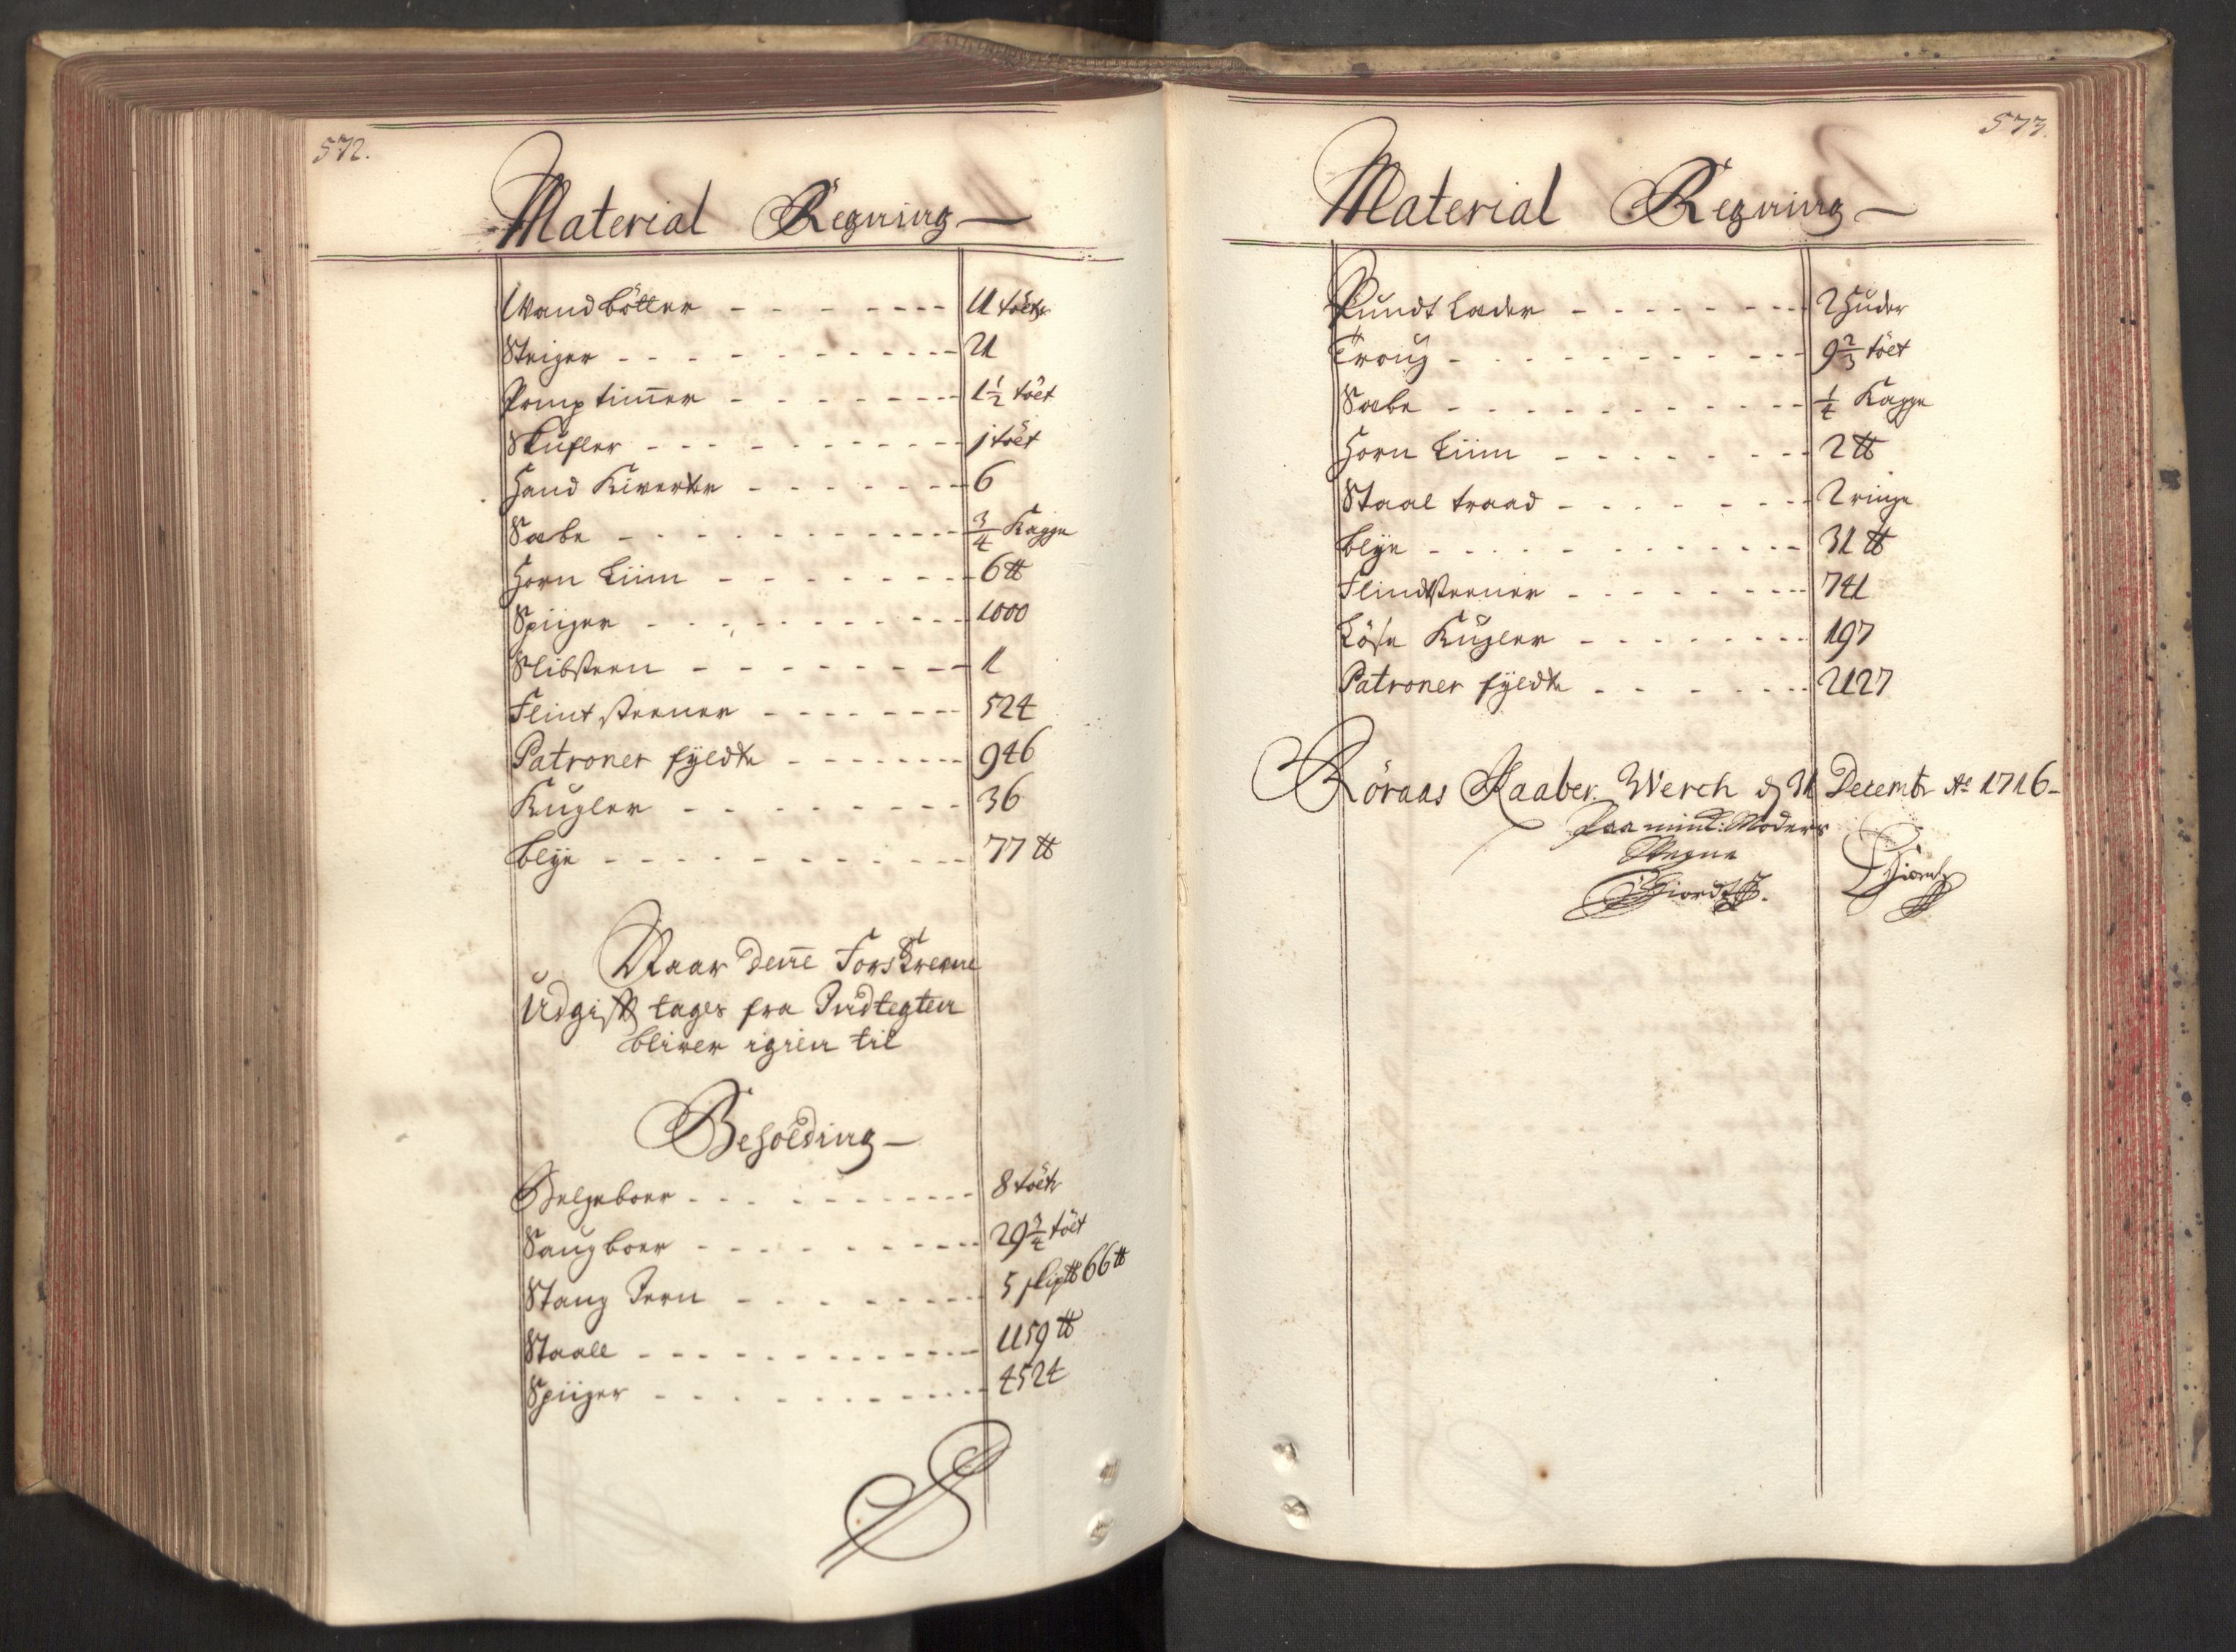 572.
Material Regning
Wandbötter - - - - - - - - 11 tölt
Steiger - - - - - - - - 21
Pomp tim̄er - - - - - - - 1 1/2 tölt
Skufler - - - - - - - - 1 tölt
Hand Kiverter - - - - - - - 6
Sæbe - - - - - - - - 3/4 Kagge
Horn Liim - - - - - - - 6 ℔
Spiiger - - - - - - - - 1000
Slibsteen - - - - - - - - 1
Flintsteener - - - - - - - 524
Patroner fyldte - - - - - - - 946
Kugler - - - - - - - - 36
Blye - - - - - - - - 77 ℔
Naar Den̄e Forskrevne
Udgift tages fra Indtegten
bliver igien til
Besolding
Belgeboer - - - - - - - - 8 tölt
Saugboer - - - - - - - - 29 3/4 tölt
Stang Jern - - - - - - - 5 skip℔ 66 ℔
Staall - - - - - - - - 1159 ℔
Spiiger - - - - - - - - 4524
573.
Material Regning
Pundt Læder - - - - - - - 2 Huder
Troug - - - - - - - - 9 2/3 tölt
Sæbe - - - - - - - - 1/4 Kagge
Horn Liim - - - - - - - 2 ℔
Staal traad - - - - - - - 2 ringe
Blye - - - - - - - - 31 ℔
Flindtsteener - - - - - - - 741
Löse Kugler - - - - - - - 197
Patroner fyldte - - - - - - - 2127
Röraas Kaaber Werch d 31 Decembr Ao 1716
Paa min Moders
Vegne